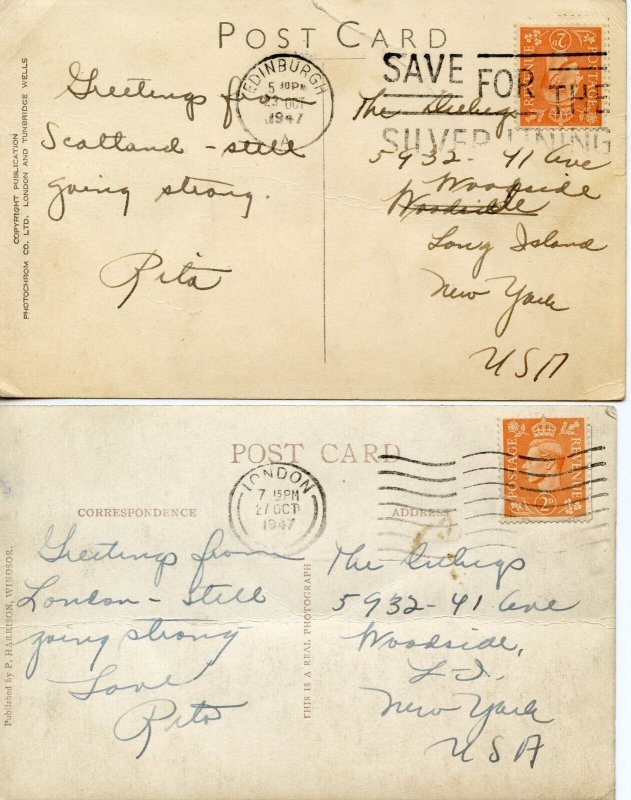 POST CARD
COPYRIGHT PUBLICATION
PHOTOCHROM CO. LTD. LONDON AND TUNBRIDGE WELLS
Greetings from
Scotland - still
going strong.
Rita
EDINBURGH
5 30 PM
23 OCT
1947
A
SAVE FOR THE
SILVER LINING
POSTAGE REVENUE
2D
The
5932 - 41 Ave
Woodside
Woodside
Long Island
New York
USA
POST CARD
CORRESPONDENCE
ADDRESS
LONDON
7 15PM
27 OCT
1947
POSTAGE REVENUE
2D
Published by P. HARRISON, WINDSOR.
THIS IS A REAL PHOTOGRAPH
Greetings from
London - Still
going strong
Love
Rita
The
5932 - 41 Ave
Woodside,
L.I.
New York
USA